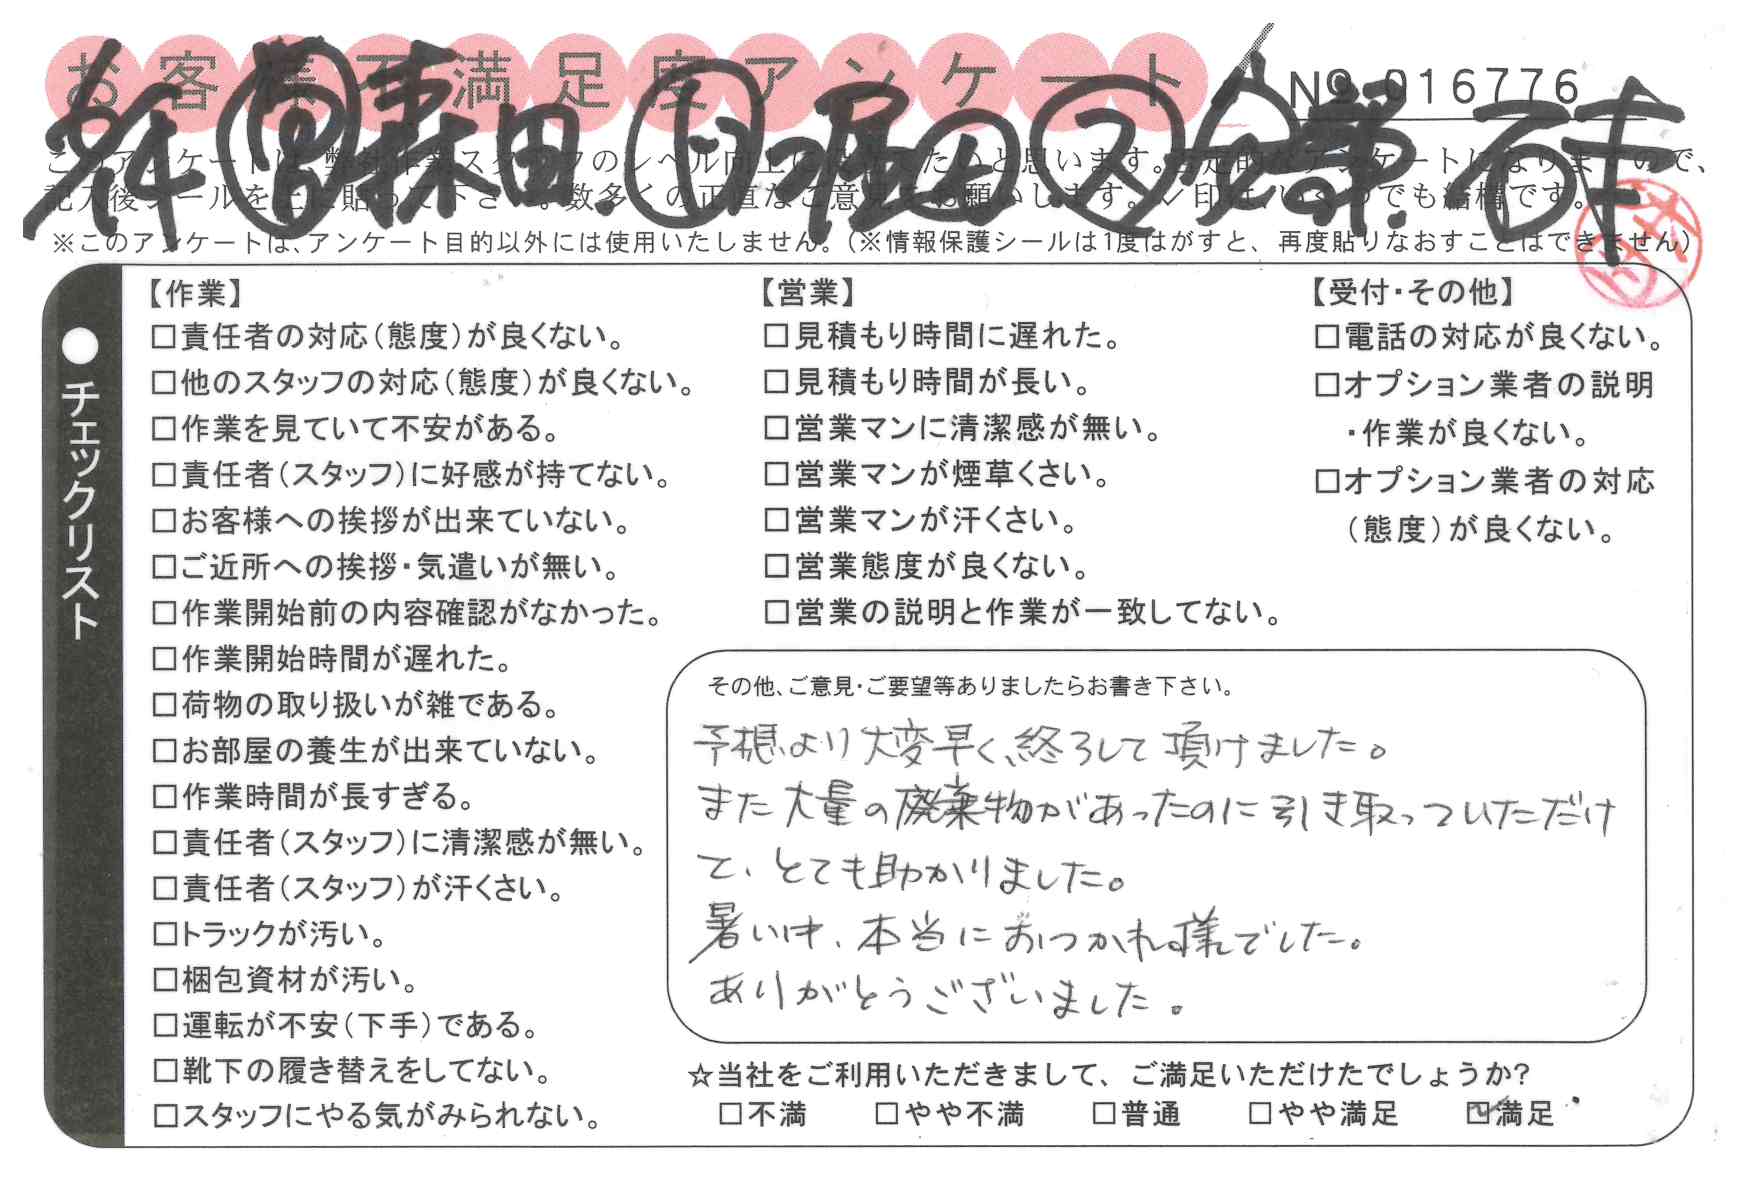 お客様不満足度アンケート
No 016776
森田
このアンケートは、弊社作業スタッフのレベル向上に
と思います。
アンケートになりますので、
記入後シールを上に貼って下さい。数多くの正直なご意見をお願いします。✓印は、いくつでも結構です。
※このアンケートは、アンケート目的以外には使用いたしません。（※情報保護シールは1度はがすと、再度貼りなおすことはできません）
●チェックリスト
【作業】
□責任者の対応（態度）が良くない。
□他のスタッフの対応（態度）が良くない。
□作業を見ていて不安がある。
□責任者（スタッフ）に好感が持てない。
□お客様への挨拶が出来ていない。
□ご近所への挨拶・気遣いが無い。
□作業開始前の内容確認がなかった。
□作業開始時間が遅れた。
□荷物の取り扱いが雑である。
□お部屋の養生が出来ていない。
□作業時間が長すぎる。
□責任者（スタッフ）に清潔感が無い。
□責任者（スタッフ）が汗くさい。
□トラックが汚い。
□梱包資材が汚い。
□運転が不安（下手）である。
□靴下の履き替えをしてない。
□スタッフにやる気がみられない。
【営業】
□見積もり時間に遅れた。
□見積もり時間が長い。
□営業マンに清潔感が無い。
□営業マンが煙草くさい。
□営業マンが汗くさい。
□営業態度が良くない。
□営業の説明と作業が一致してない。
【受付・その他】
□電話の対応が良くない。
□オプション業者の説明
・作業が良くない。
□オプション業者の対応
（態度）が良くない。
その他、ご意見・ご要望等ありましたらお書き下さい。
予想より大変早く、終了して頂けました。
また大量の廃棄物があったのに引き取っていただけ
て、とても助かりました。
暑い中、本当におつかれ様でした。
ありがとうございました。
☆当社をご利用いただきまして、ご満足いただけたでしょうか？
□不満 □やや不満 □普通 □やや満足 ☑満足